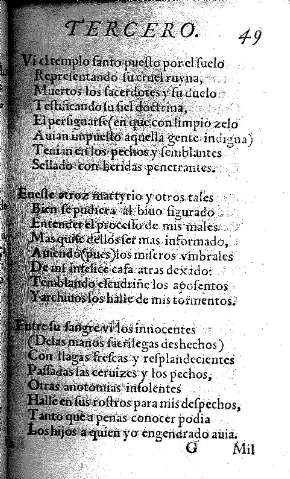 TERCERO. 49
Vi el templo santo puesto por el suelo
Representando su cruel ruyna,
Muertos los sacerdotes y su duelo
Testificando su fiel doctrina,
El persignarse (en que con limpio zelo
Auian impuesto aquella gente indigna)
Tenian en los pechos y semblantes
Sellado con heridas penetrantes.
Eneste atroz martyrio y otros tales
Bien se pudiera al biuo figurado
Entender el processo de mis males
Mas quise dellos ser mas informado,
Auiendo (pues) los miseros vmbrales
De mi infelice casa atras dexado:
Temblando escudriñe los aposentos
Y archiuos los halle de mis tormentos.
Entre su sangre vi los innocentes
(Delas manos sacrilegas deshechos)
Con llagas frescas y resplandecientes
Passadas las ceruizes y los pechos,
Otras anotomias insolentes
Halle en sus rostros para mis despechos,
Tanto que a penas conocer podia
Los hijos a quien yo engendrado auia.
G Mil